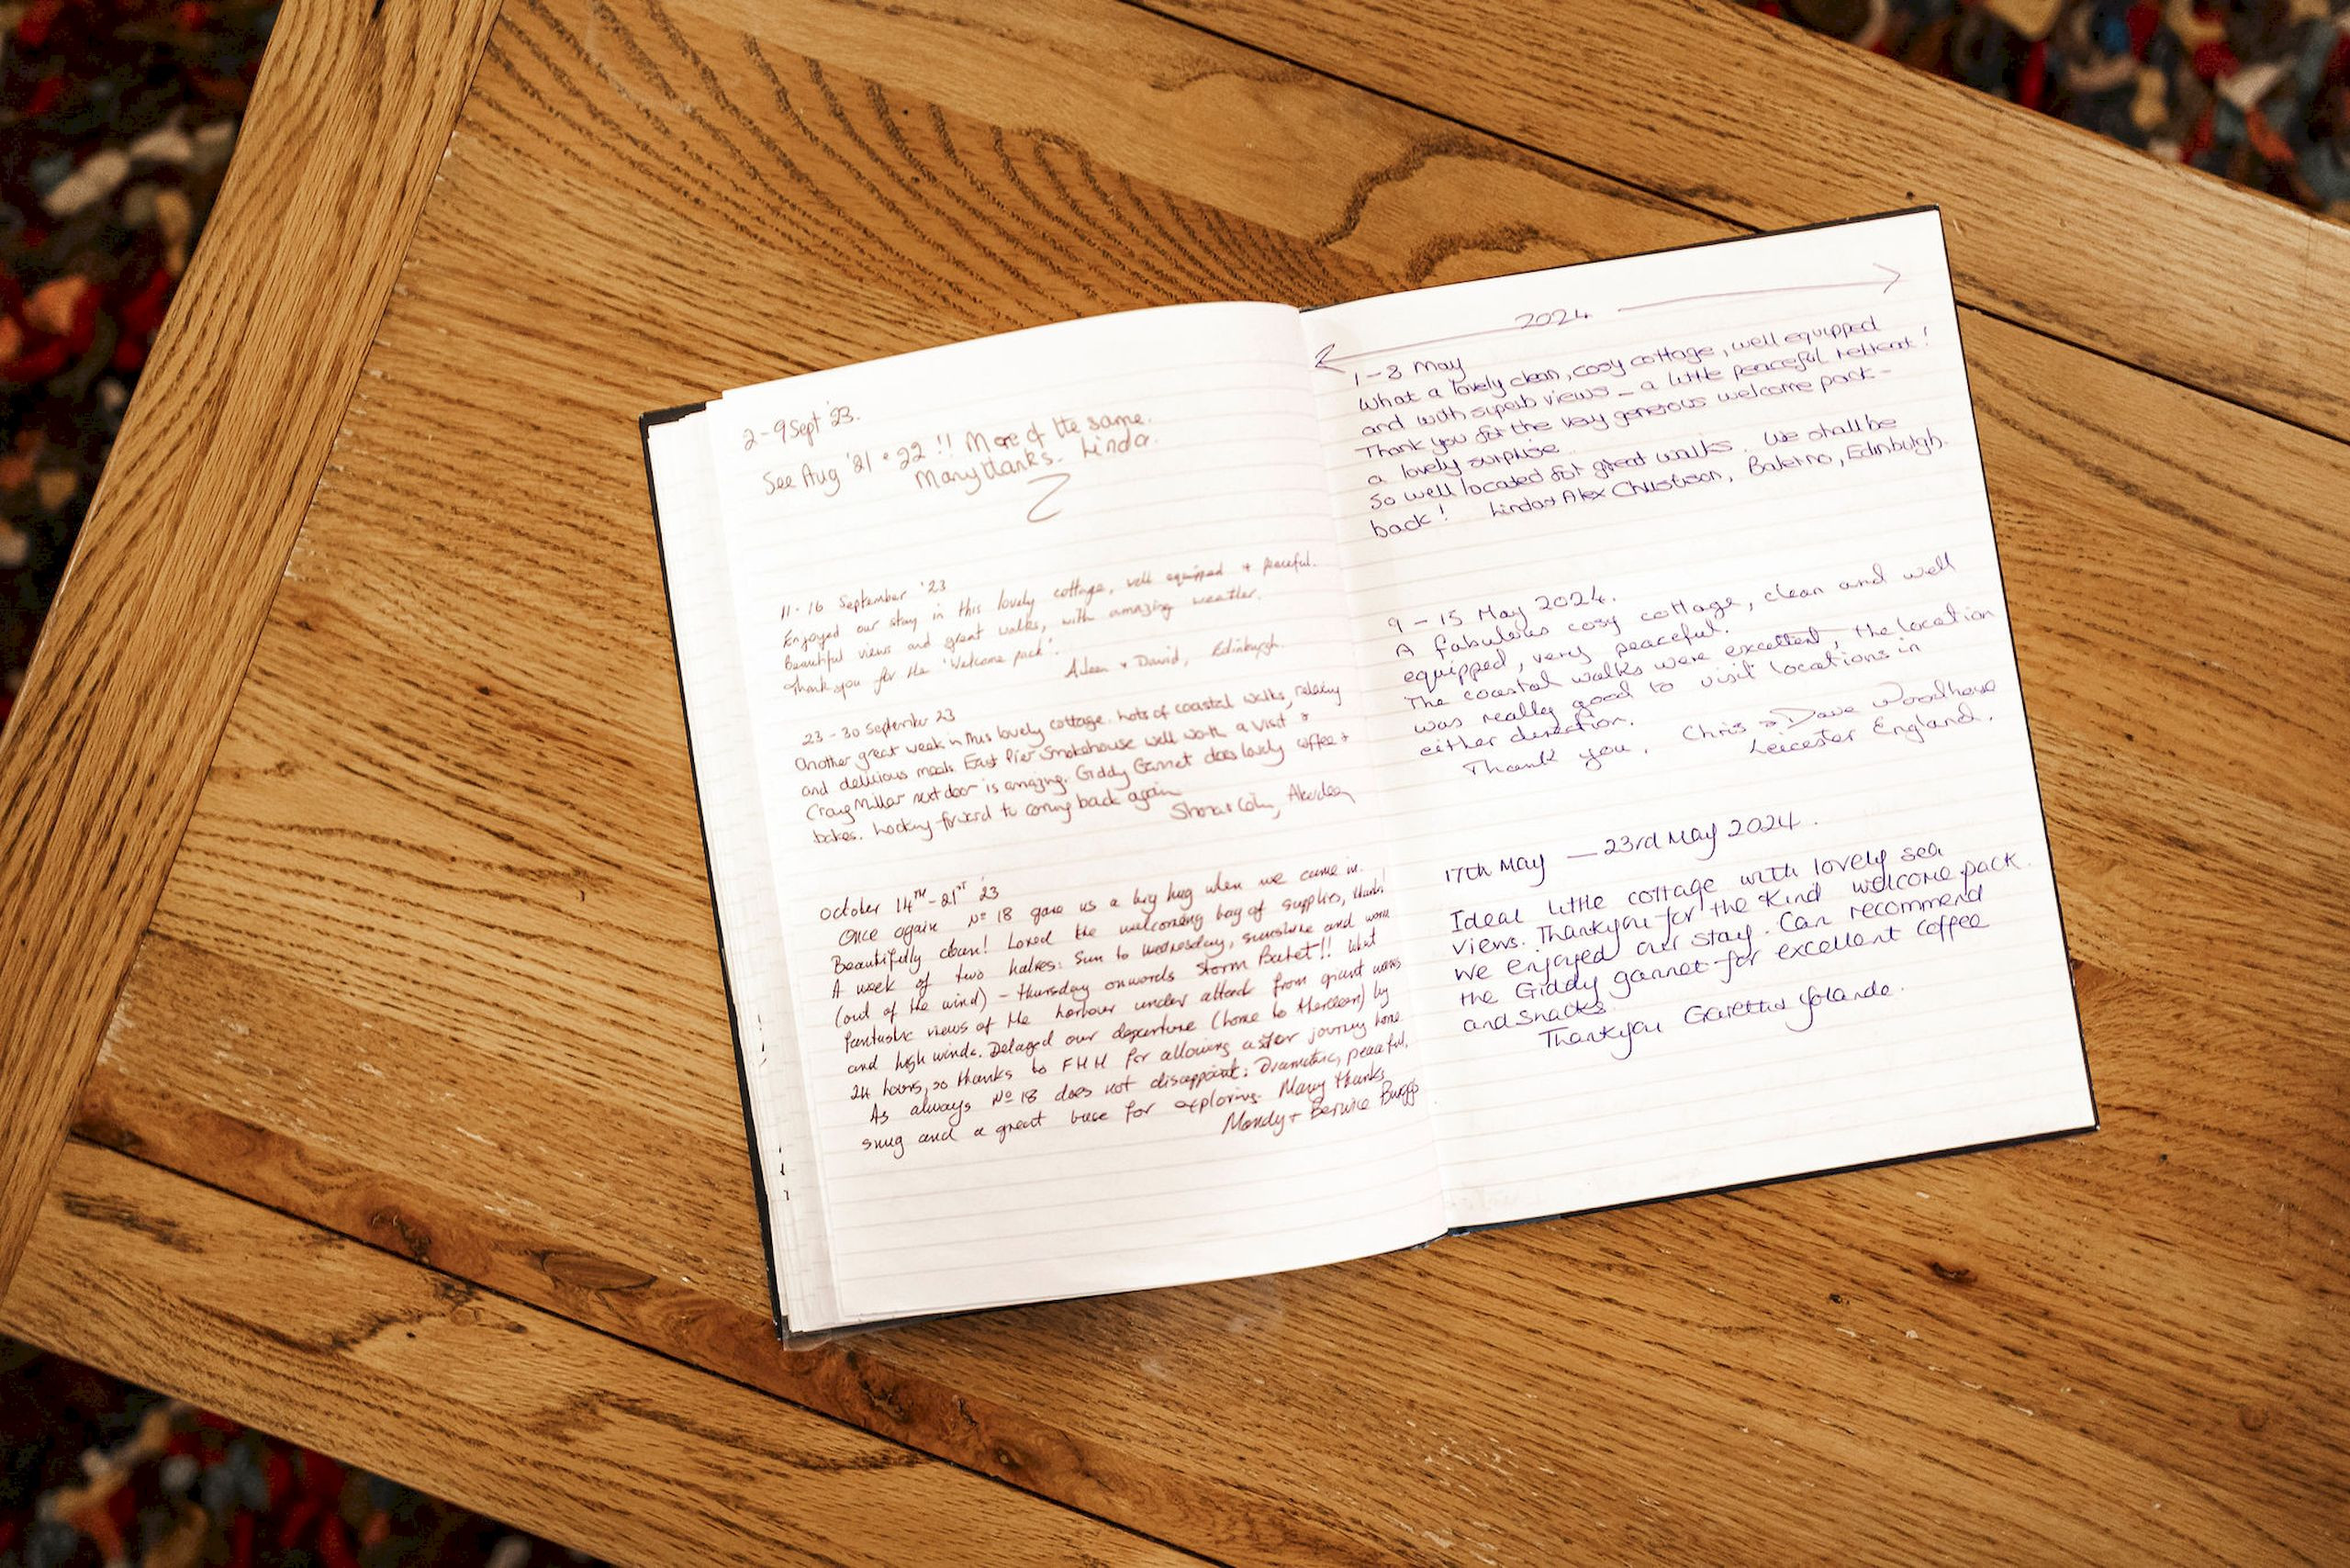 2-9 Sept '23.
See Aug '21 + 22 !! More of the same.
Many thanks. Linda.
11-16 September '23
Enjoyed our stay in this lovely cottage, well equipped + peaceful.
Beautiful views and great walks, with amazing weather.
Thank you for the 'Welcome pack'.
Aileen + David, Edinburgh.
23-30 September 23
Another great week in this lovely cottage. Lots of coastal walks, relaxing
and delicious meals. East Pier Smokehouse well worth a visit &
Craig Millar next door is amazing. Giddy Gannet does lovely coffee +
bakes. Looking forward to coming back again
Colin, Aberdeen
October 14TH-21ST '23
Once again Nº 18 gave us a big hug when we came in.
Beautifully clean! Loved the welcoming bag of supplies, thanks!
A week of two halves: Sun to Wednesday, sunshine and warm
(out of the wind) - Thursday onwards Storm Babet!! What
fantastic views of the harbour under attack from giant waves
and high winds. Delayed our departure (home to Aberdeen) by
24 hours, so thanks to FHH for allowing a safer journey home.
As always Nº 18 does not disappoint: Dramatic, peaceful,
snug and a great base for exploring. Many thanks
Mandy + Bernice
2024
1-8 May
What a lovely clean, cosy cottage, well equipped
and with superb views - a little peaceful retreat!
Thank you for the very generous welcome pack -
a lovely surprise.
So well located for great walks. We shall be
back! Linda + Alex Christison, Balerno, Edinburgh.
9-15 May 2024.
A fabulous cosy cottage, clean and well
equipped, very peaceful.
The coastal walks were excellent, the location
was really good to visit locations in
either direction.
Thank you. Chris & Dave Woodhouse
Leicester England.
17th May - 23rd May 2024.
Ideal little cottage with lovely sea
views. Thankyou for the kind welcome pack.
We enjoyed our stay. Can recommend
the Giddy gannet for excellent coffee
and snacks.
Thankyou Yolande.